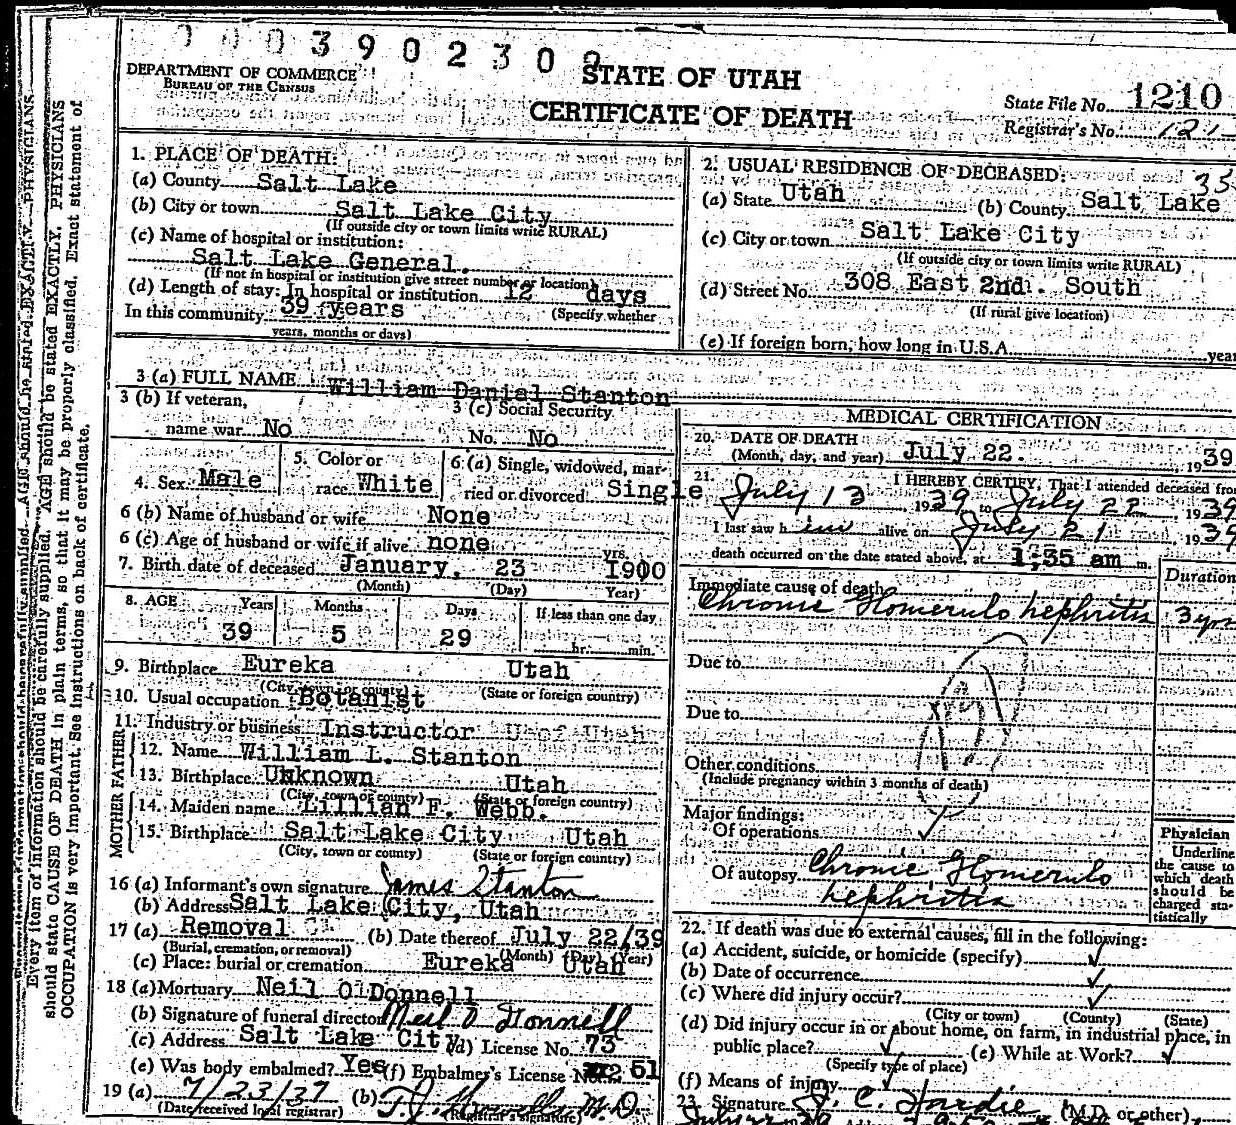 0003902309
DEPARTMENT OF COMMERCE
BUREAU OF THE CENSUS
STATE OF UTAH
CERTIFICATE OF DEATH
State File No. 1210
Registrar's No. 121
Every item of information should be carefully supplied. AGE should be stated EXACTLY. PHYSICIANS
should state CAUSE OF DEATH in plain terms, so that it may be properly classified. Exact statement of
OCCUPATION is very important. See instructions on back of certificate.
1. PLACE OF DEATH:
(a) County Salt Lake
(b) City or town Salt Lake City
(If outside city or town limits write RURAL)
(c) Name of hospital or institution:
Salt Lake General.
(If not in hospital or institution give street number or location)
(d) Length of stay: In hospital or institution 12 days
In this community 39 years (Specify whether
years, months or days)
2. USUAL RESIDENCE OF DECEASED:
35
(a) State Utah (b) County Salt Lake
(c) City or town Salt Lake City
(If outside city or town limits write RURAL)
(d) Street No. 308 East 2nd. South
(If rural give location)
(e) If foreign born, how long in U.S.A. year
3 (a) FULL NAME William Danial Stanton
3 (b) If veteran,
name war No
3 (c) Social Security
No. No
4. Sex Male
5. Color or
race White
6 (a) Single, widowed, mar-
ried or divorced Single
6 (b) Name of husband or wife None
6 (c) Age of husband or wife if alive none yrs.
7. Birth date of deceased January, 23 1900
(Month) (Day) Year)
8. AGE Years Months Days If less than one day
39 5 29 hr. min.
9. Birthplace Eureka Utah
(City, town or county) (State or foreign country)
10. Usual occupation Botanist
11. Industry or business Instructor U of Utah
FATHER
12. Name William L. Stanton
13. Birthplace Unknown Utah
(City, town or county) (State or foreign country)
MOTHER
14. Maiden name Lillian F. Webb.
15. Birthplace Salt Lake City Utah
(City, town or county) (State or foreign country)
16 (a) Informant's own signature James Stanton
(b) Address Salt Lake City, Utah
17 (a) Removal (b) Date thereof July 22/39
(Burial, cremation, or removal) (Month) (Day) (Year)
(c) Place: burial or cremation Eureka Utah
18 (a) Mortuary Neil O'Donnell
(b) Signature of funeral director Neil O Donnell
(c) Address Salt Lake City (d) License No. 73
(e) Was body embalmed? Yes (f) Embalmer's License No. 251
19 (a) 7/23/39 (b) M.D.
(Date received local registrar) (Registrar's signature)
MEDICAL CERTIFICATION
20. DATE OF DEATH
(Month, day, and year) July 22. 1939
21. I HEREBY CERTIFY, That I attended deceased from
July 13, 1939 to July 22 1939
I last saw h im alive on July 21, 1939
death occurred on the date stated above, at 1;35 am m.
Duration
Immediate cause of death
Chronic Glomerulo nephritis 3 yrs
Due to
Due to
Other conditions
(Include pregnancy within 3 months of death)
Major findings:
Of operations
Of autopsy Chronic Glomerulo
nephritis
Physician
Underline
the cause to
which death
should be
charged sta-
tistically
22. If death was due to external causes, fill in the following:
(a) Accident, suicide, or homicide (specify)
(b) Date of occurrence
(c) Where did injury occur?
(City or town) (County) (State)
(d) Did injury occur in or about home, on farm, in industrial place, in
public place? (e) While at Work?
(Specify type of place)
(f) Means of injury
23. Signature J. C. Hardie (M.D. or other)